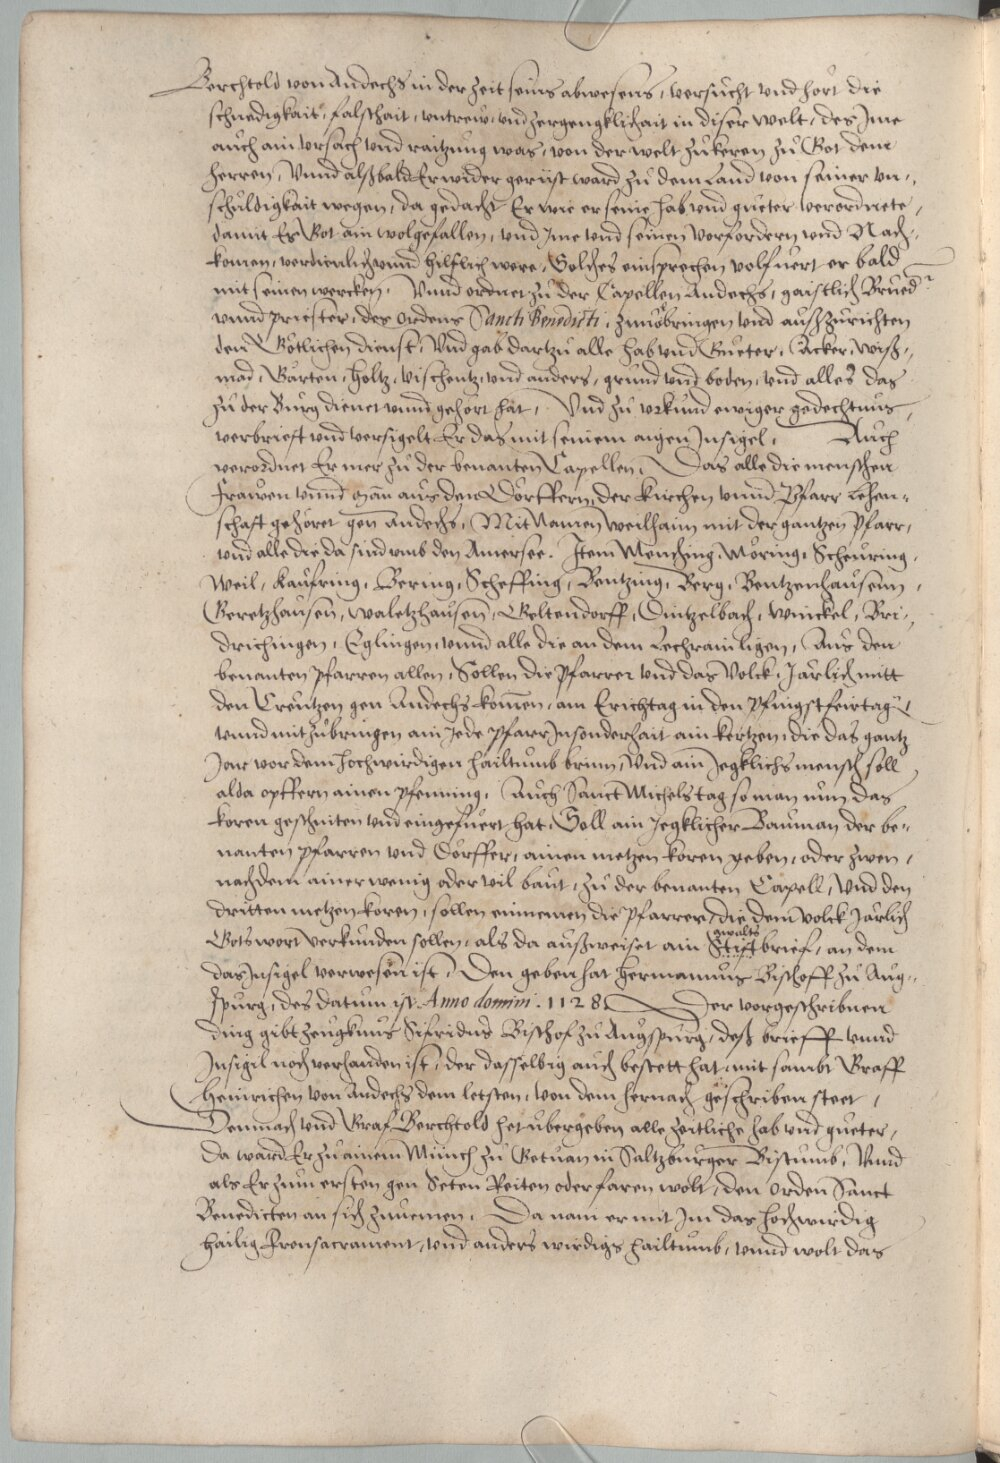 Berchtold von Andechs in der Zeit seins abwesens, versucht und hört die
schnedigkait, falschait, untrew, und zergengklichait in diser welt, des Jme
auch ain ursach und raitzung was, von der welt zůkeren zů Got dem
herren, Vnnd alßbald Er wider gerüst ward zů dem Land von seiner un-,
schuldigkait wegen, da gedacht Er wie er seine hab und güeter verordnete,
damit Er Got ain wolgefallen, und Jme und seinen Vorfordern und Nach-,
komen, verdienlich unnd hilflich were, Solches einsprechen volfuert er bald
mit seinen wercken. Vnnd ordnet zů der Capellen Andechs, gaistlich Brüed.
unnd priester, des Ordens Sancti Benedicti, zuuolbringen und außzurichten
den Götlichen dienst, Vnd gab dartzů alle hab und Güeter, Äcker, Wiß-,
mad, Gärten, holtz, vischentz, und anders, grund und boden, und alles das
zů der Burg dienet unnd gehört hat, Vnd zů urkund ewiger gedechtnus,
verbrieft und versigelt Er das mit seinem aigen Jnsigel, Auch
verordnet Er mer zů der benanten Capellen, Das alle die menschen
frawen unnd man aus den Dörffern, der kirchen unnd Pfarr Lehen-
schaft gehöret gen Andechs, Mit Namen Weilhaim mit der gantzen Pfarr,
und alle die da sind umb den Amersee. Jtem Menching, Möring, Scheuring,
Weil, Kaufring, Bering, Scheffing, Pentzing, Berg, Bentzenhausenn,
Geretzhausen, Waletzhausen, Geltendorff, Duntzelbach, Winckel, Bri-
drichingen, Eglingen, unnd alle die an dem Lechrain ligen, Aus den
benanten Pfarren allen, Sollen die Pfarrer und das Volck, Järlich mitt
den Creutzen gen Andechs komen, am Erichtag in den Pfingstfeirtagē,
unnd mit zůbringen ain Jede Pfarr Jnsonderhait ain kertzen, die das gantz
Jar vor dem hochwirdigen hailtumb brinn, Vnd ain Jegklichs mensch soll
alda opffern ainen pfenning, Auch Sanct Michels tag so man nun das
koren geschniten und eingefuert hat, Soll ain Jegklicher Bauman der be-
nanten Pfarren und Dörffer, ainen metzen koren geben, oder zwen,
nach dem ainer wenig oder vil baut, zů der benanten Capell, Vnd den
dritten metzen koren, sollen einnemen die Pfarrer, die dem Volck Järlich
Gots wort verkunden sollen, als da außweiset ain Stift brief, an dem
das Jnsigel verwesen ist, Den geben hat Hermannus Bischoff zů Aug-
spurg, des datum ist Anno domini. 1128. Der vorgeschribnen
ding gibt zeugknus Sifridus Bischof zů Augspurg, deß brieff unnd
Jnsigil noch verhanden ist, der dasselbig auch bestett hat, mit sambt Graff
Heinrichen von Andechs dem letsten, von dem hernach geschriben steet,
Demnach und Graf Berchtold het übergeben alle Zeitliche hab und güeter,
da ward Er zu ainem Münch zů in Saltzburger Bistumb, Vnnd
als Er zum ersten gen Seten Reiten oder faren wolt, den Orden Sanct
Benedicten an sich zunemen, Da nam er mit Jm das hochwirdig
hailig Fronsacrament, und anders wirdigs hailtumb, unnd wolt das